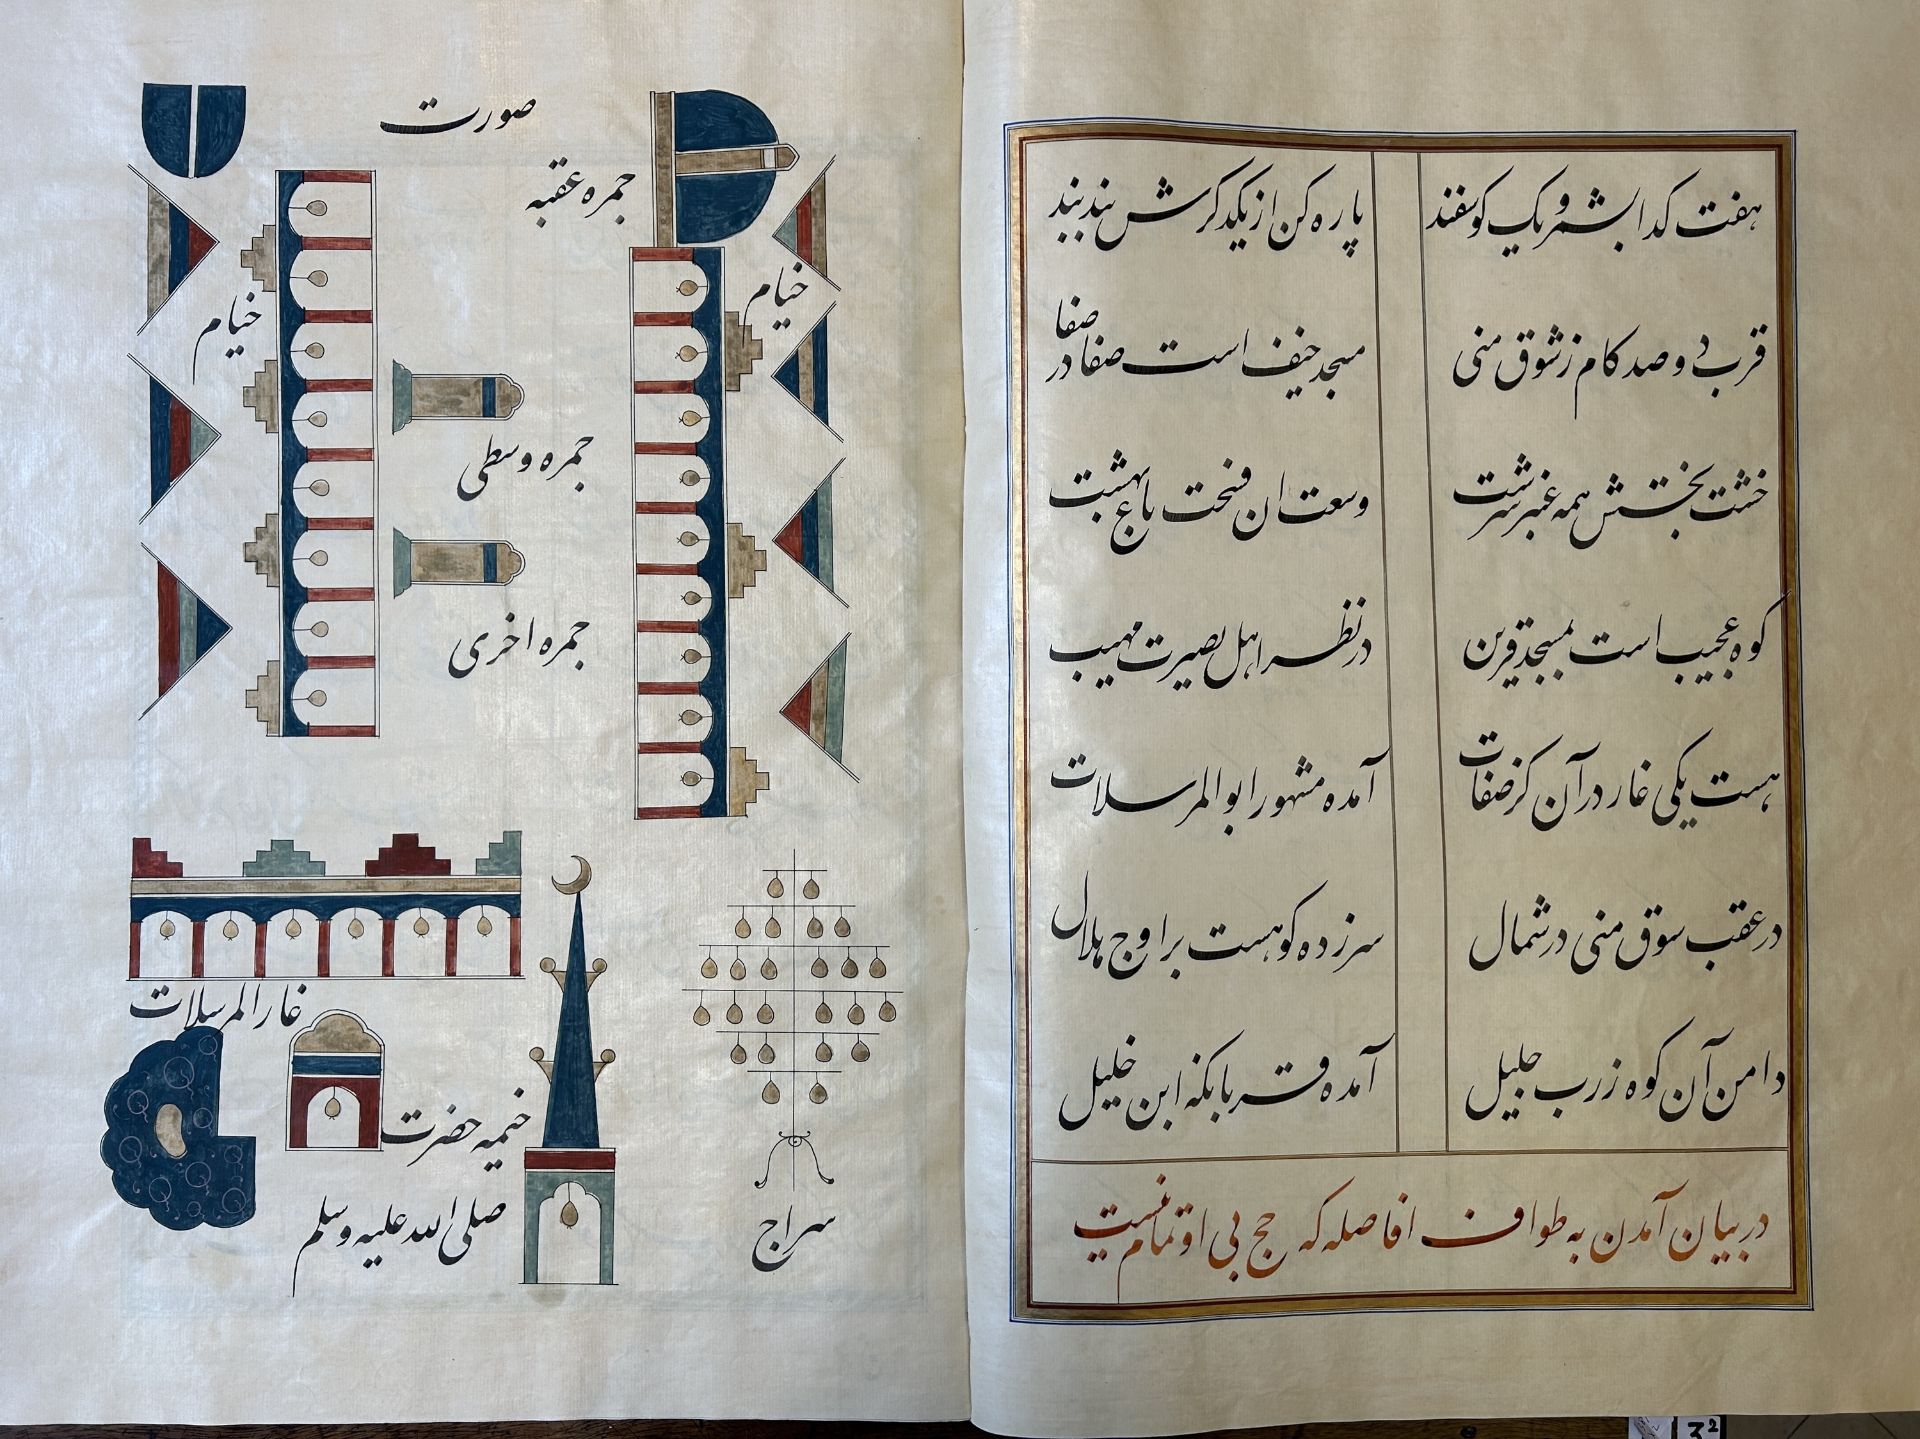 هفت كدا بشمر و یک کوسفند پاره کن از یکدکرش بند بند
قرب دو صد کام ز شوق منی مسجد خیف است صفا در صفا
خشت بختش همه عنبر سرشت وسعت ان فسحت باغ بهشت
کوه عجیب است بمسجد قرین در نظر اهل بصیرت مهیب
هست یکی غار در آن کز صفات آمده مشهور ابو المرسلات
در عقب سوق منی در شمال سر زده کوهست بر اوج هلال
دامن آن کوه ز رب جلیل آمده قربانکه ابن خلیل
در بیان آمدن به طواف افاصله که حج بی او تمام نیست
صورت
جمره عقبه
خیام
خیام
جمره وسطی
جمره اخری
غار المرسلات
خیمه حضرت
صلی الله علیه وسلم
سراج
32